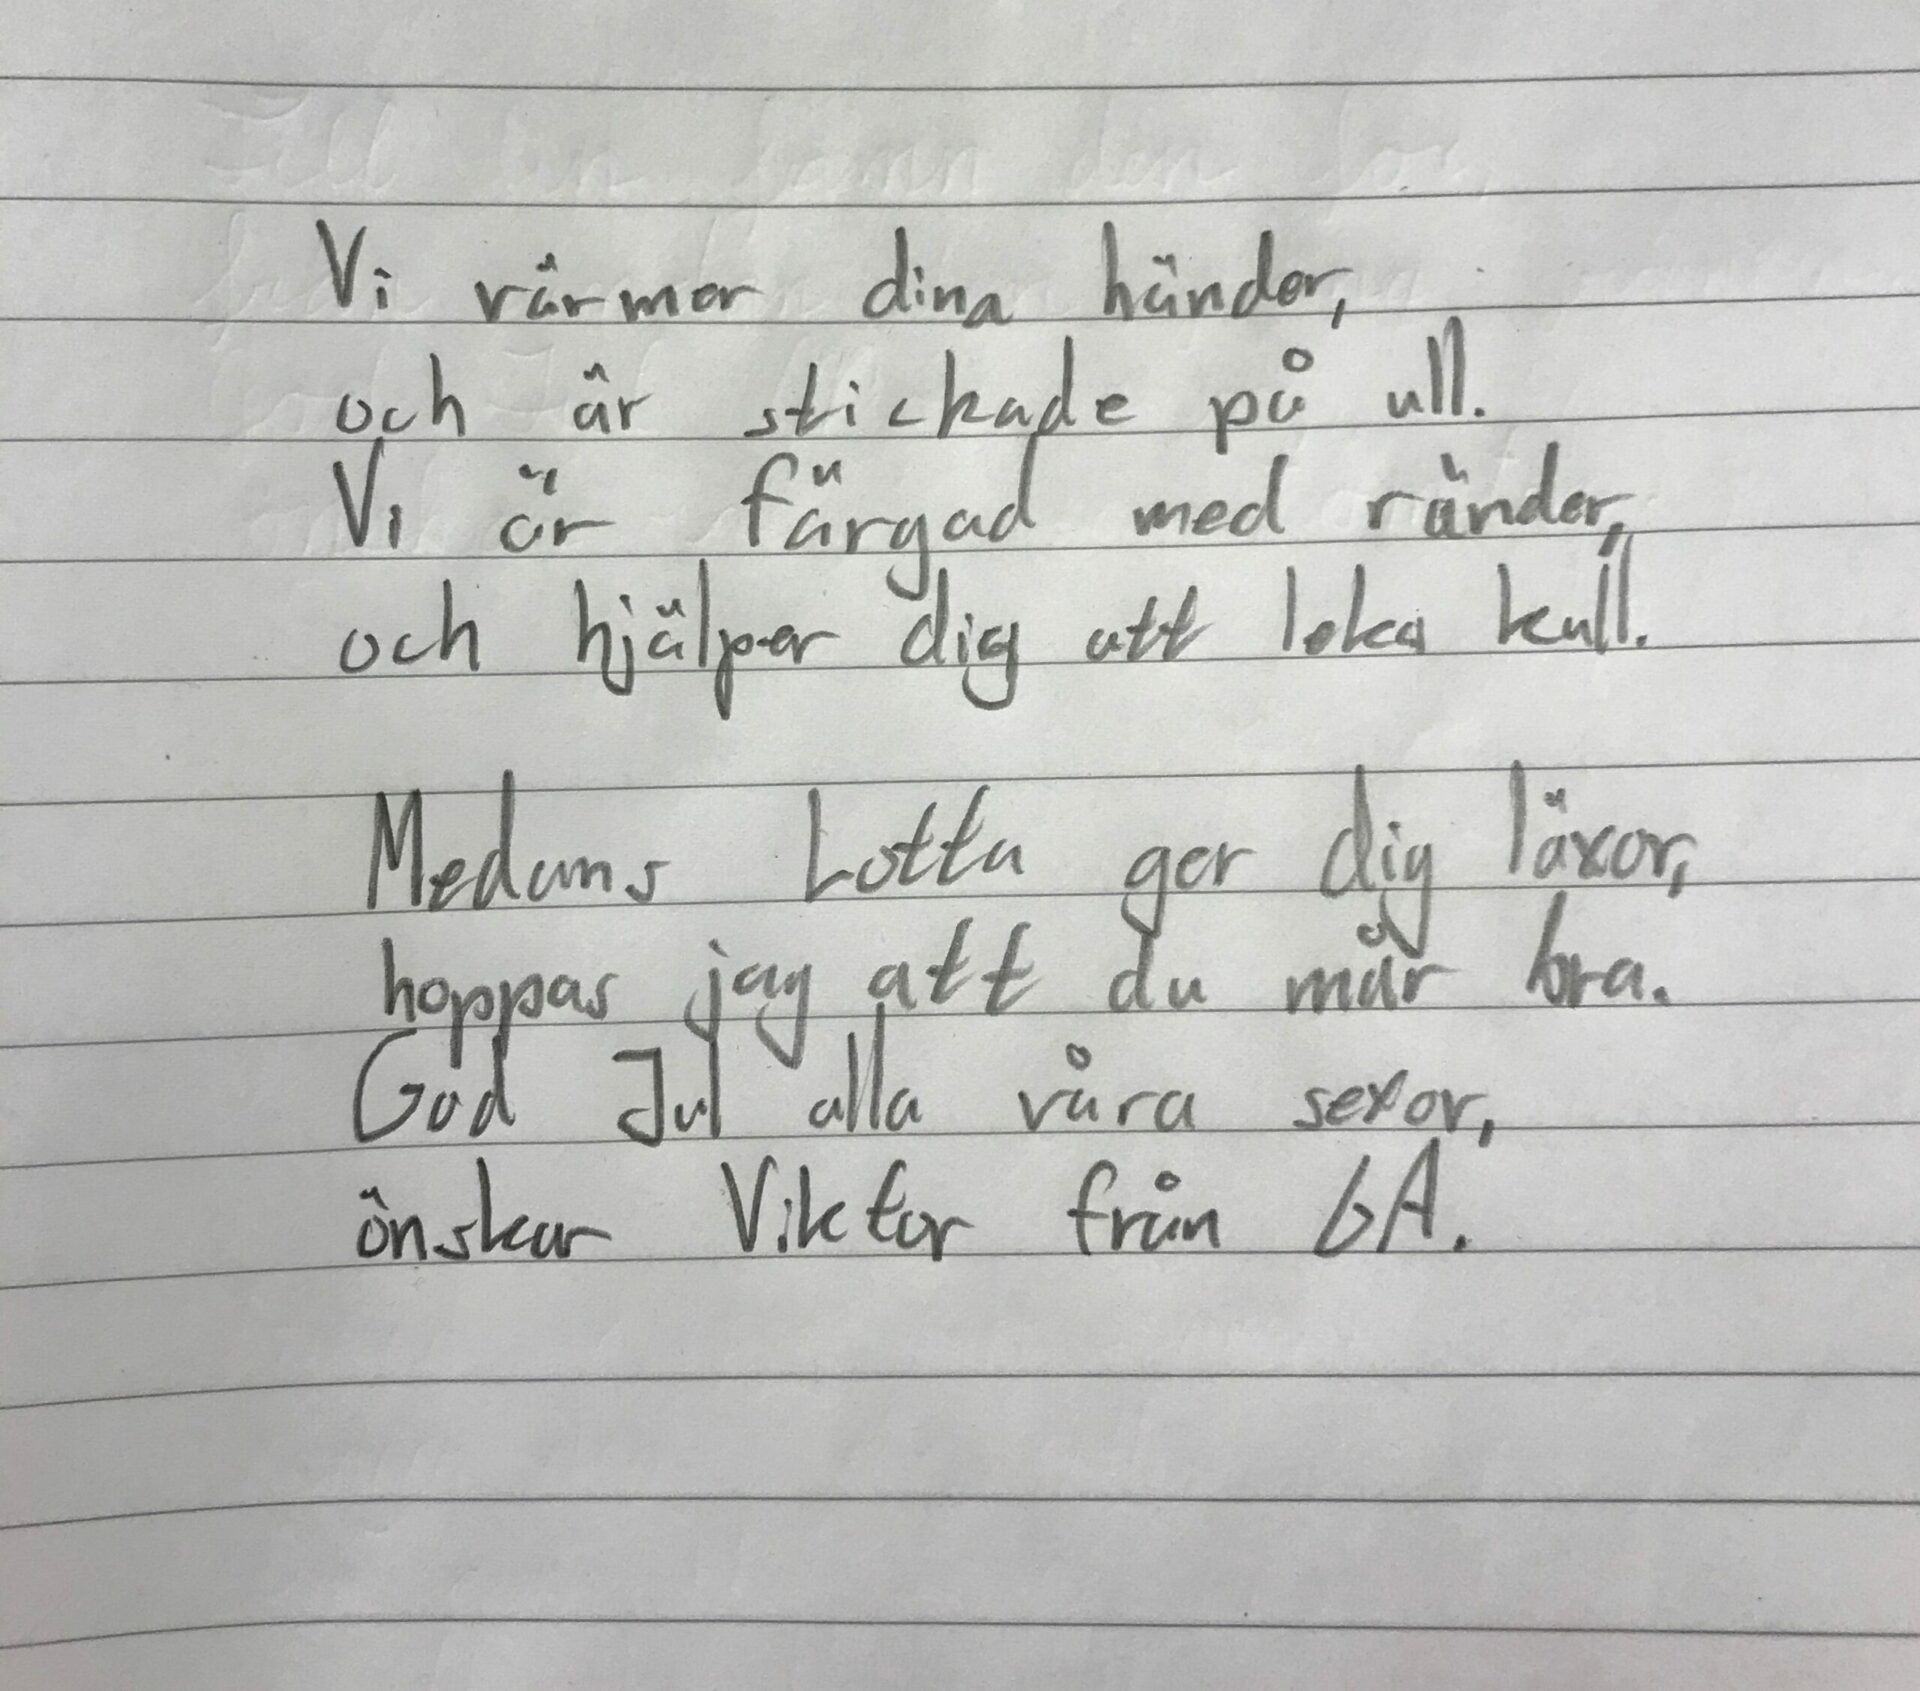 Vi värmer dina händer,
och är stickade på ull.
Vi är färgad med ränder,
och hjälper dig att leka kull.
Medans Lotta ger dig läxor,
hoppas jag att du mår bra.
God Jul alla våra sexor,
önskar Viktor från 6A.